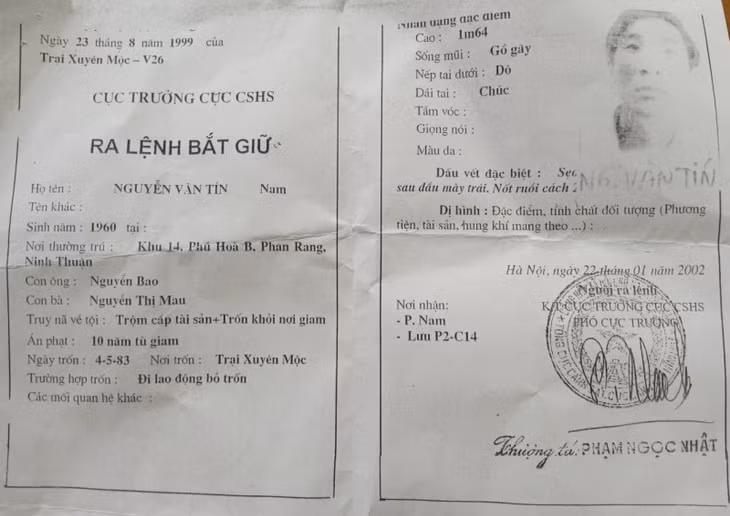 Ngày 23 tháng 8 năm 1999 của
Trại Xuyên Mộc – V26
CỤC TRƯỞNG CỤC CSHS
RA LỆNH BẮT GIỮ
Họ tên : NGUYỄN VĂN TÍN Nam
Tên khác :
Sinh năm : 1960 tại :
Nơi thường trú : Khu 14, Phú Hoà B, Phan Rang,
Ninh Thuận
Con ông : Nguyễn Bao
Con bà : Nguyễn Thị Mau
Truy nã về tội : Trộm cắp tài sản+Trốn khỏi nơi giam
Án phạt : 10 năm tù giam
Ngày trốn : 4-5-83 Nơi trốn : Trại Xuyên Mộc
Trường hợp trốn : Đi lao động bỏ trốn
Các mối quan hệ khác :
Nhân dạng đặc điểm
Cao : 1m64
Sống mũi : Gồ gãy
Nếp tai dưới : Dô
Dái tai : Chúc
Tầm vóc :
Giọng nói :
Màu da :
Dấu vết đặc biệt : Sẹo
sau đầu mày trái. Nốt ruồi cách
Dị hình : Đặc điểm, tính chất đối tượng (Phương
tiện, tài sản, hung khí mang theo ...) :
Hà Nội, ngày 22 tháng 01 năm 2002
Người ra lệnh
K/T CỤC TRƯỞNG CỤC CSHS
PHÓ CỤC TRƯỞNG
Nơi nhận:
- P. Nam
- Lưu P2-C14
Thượng tá: PHẠM NGỌC NHẬT